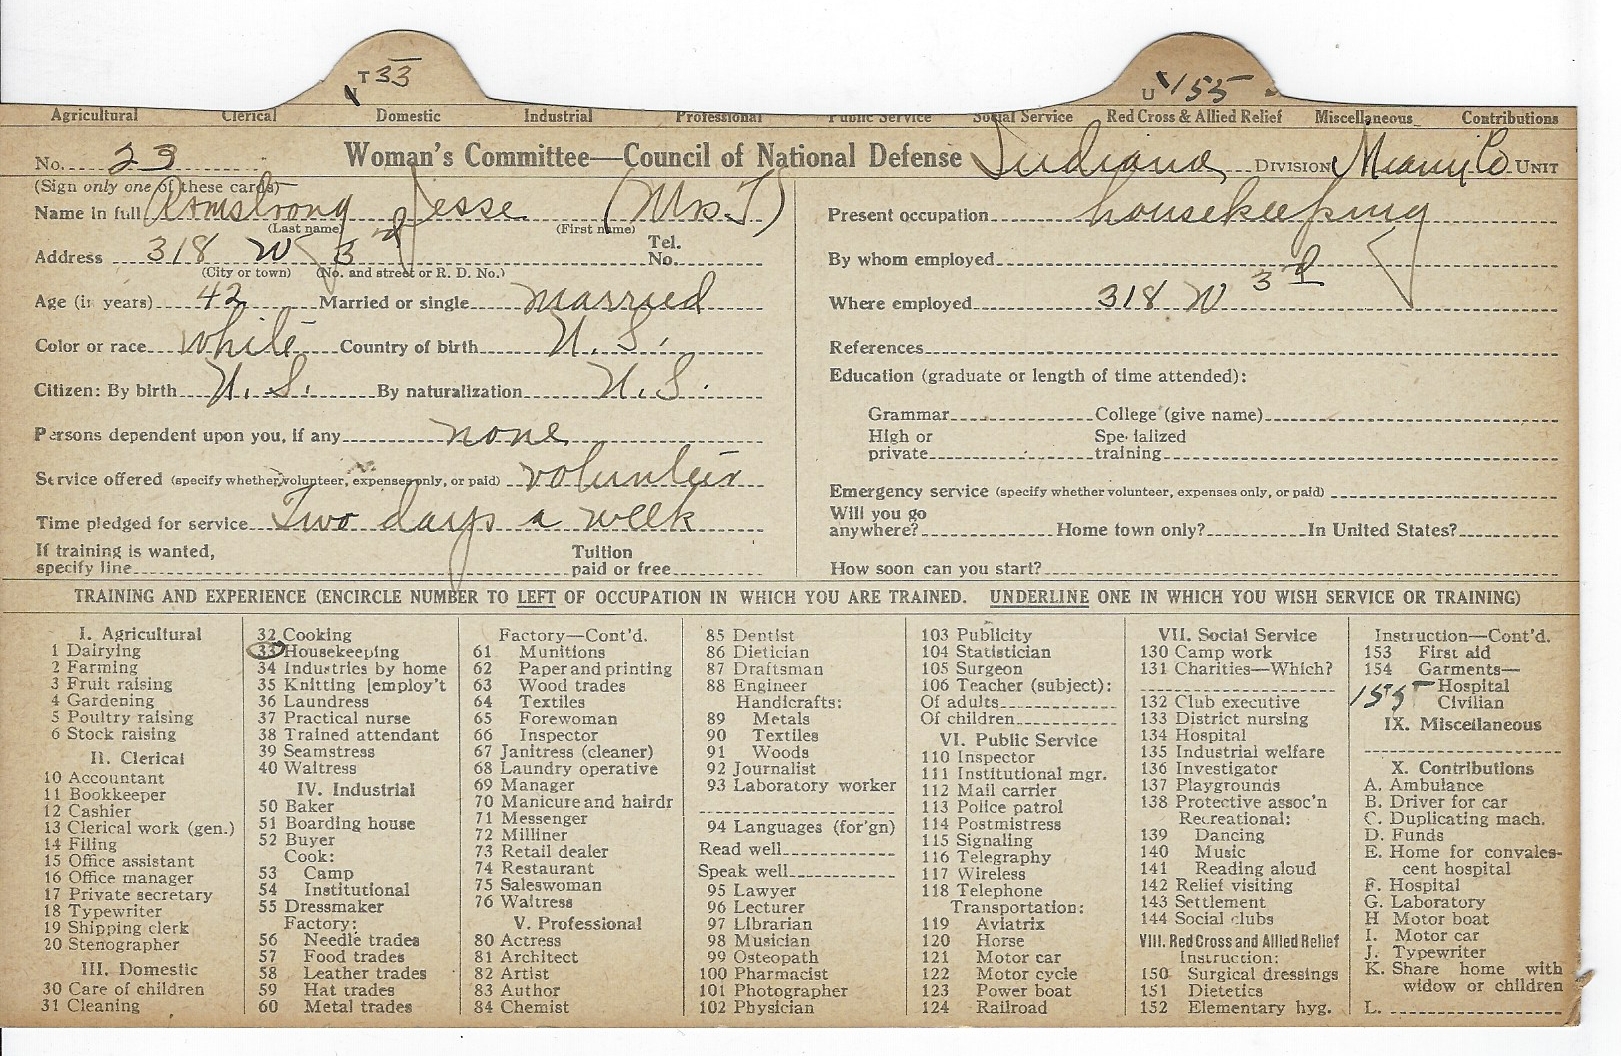 T 33 U 155
Agricultural Clerical Domestic Industrial Professional Public Service Social Service Red Cross & Allied Relief Miscellaneous Contributions
No. 23 Woman's Committee—Council of National Defense Indiana DIVISION Miami Co UNIT
(Sign only one of these cards)
Name in full Armstrong Jesse (Mrs T)
(Last name) (First name)
Address 318 W 3rd Tel. No.
(City or town) (No. and street or R. D. No.)
Age (in years) 42 Married or single married
Color or race white Country of birth U. S.
Citizen: By birth U. S. By naturalization U. S.
Persons dependent upon you, if any none
Service offered (specify whether volunteer, expenses only, or paid) volunteer
Time pledged for service Two days a week
If training is wanted, specify line Tuition paid or free
Present occupation housekeeping
By whom employed
Where employed 318 W 3rd
References
Education (graduate or length of time attended):
Grammar College (give name)
High or private Specialized training
Emergency service (specify whether volunteer, expenses only, or paid)
Will you go anywhere? Home town only? In United States?
How soon can you start?
TRAINING AND EXPERIENCE (ENCIRCLE NUMBER TO LEFT OF OCCUPATION IN WHICH YOU ARE TRAINED. UNDERLINE ONE IN WHICH YOU WISH SERVICE OR TRAINING)
I. Agricultural
1 Dairying
2 Farming
3 Fruit raising
4 Gardening
5 Poultry raising
6 Stock raising
II. Clerical
10 Accountant
11 Bookkeeper
12 Cashier
13 Clerical work (gen.)
14 Filing
15 Office assistant
16 Office manager
17 Private secretary
18 Typewriter
19 Shipping clerk
20 Stenographer
III. Domestic
30 Care of children
31 Cleaning
32 Cooking
33 Housekeeping
34 Industries by home
35 Knitting [employ't
36 Laundress
37 Practical nurse
38 Trained attendant
39 Seamstress
40 Waitress
IV. Industrial
50 Baker
51 Boarding house
52 Buyer
Cook:
53 Camp
54 Institutional
55 Dressmaker
Factory:
56 Needle trades
57 Food trades
58 Leather trades
59 Hat trades
60 Metal trades
Factory—Cont'd.
61 Munitions
62 Paper and printing
63 Wood trades
64 Textiles
65 Forewoman
66 Inspector
67 Janitress (cleaner)
68 Laundry operative
69 Manager
70 Manicure and hairdr
71 Messenger
72 Milliner
73 Retail dealer
74 Restaurant
75 Saleswoman
76 Waitress
V. Professional
80 Actress
81 Architect
82 Artist
83 Author
84 Chemist
85 Dentist
86 Dietician
87 Draftsman
88 Engineer
Handicrafts:
89 Metals
90 Textiles
91 Woods
92 Journalist
93 Laboratory worker
94 Languages (for'gn)
Read well
Speak well
95 Lawyer
96 Lecturer
97 Librarian
98 Musician
99 Osteopath
100 Pharmacist
101 Photographer
102 Physician
103 Publicity
104 Statistician
105 Surgeon
106 Teacher (subject):
Of adults
Of children
VI. Public Service
110 Inspector
111 Institutional mgr.
112 Mail carrier
113 Police patrol
114 Postmistress
115 Signaling
116 Telegraphy
117 Wireless
118 Telephone
Transportation:
119 Aviatrix
120 Horse
121 Motor car
122 Motor cycle
123 Power boat
124 Railroad
VII. Social Service
130 Camp work
131 Charities—Which?
132 Club executive
133 District nursing
134 Hospital
135 Industrial welfare
136 Investigator
137 Playgrounds
138 Protective assoc'n
Recreational:
139 Dancing
140 Music
141 Reading aloud
142 Relief visiting
143 Settlement
144 Social clubs
VIII. Red Cross and Allied Relief
Instruction:
150 Surgical dressings
151 Dietetics
152 Elementary hyg.
Instruction—Cont'd.
153 First aid
154 Garments—
Hospital
155 Civilian
IX. Miscellaneous
X. Contributions
A. Ambulance
B. Driver for car
C. Duplicating mach.
D. Funds
E. Home for convales-
cent hospital
F. Hospital
G. Laboratory
H Motor boat
I. Motor car
J. Typewriter
K. Share home with
widow or children
L.